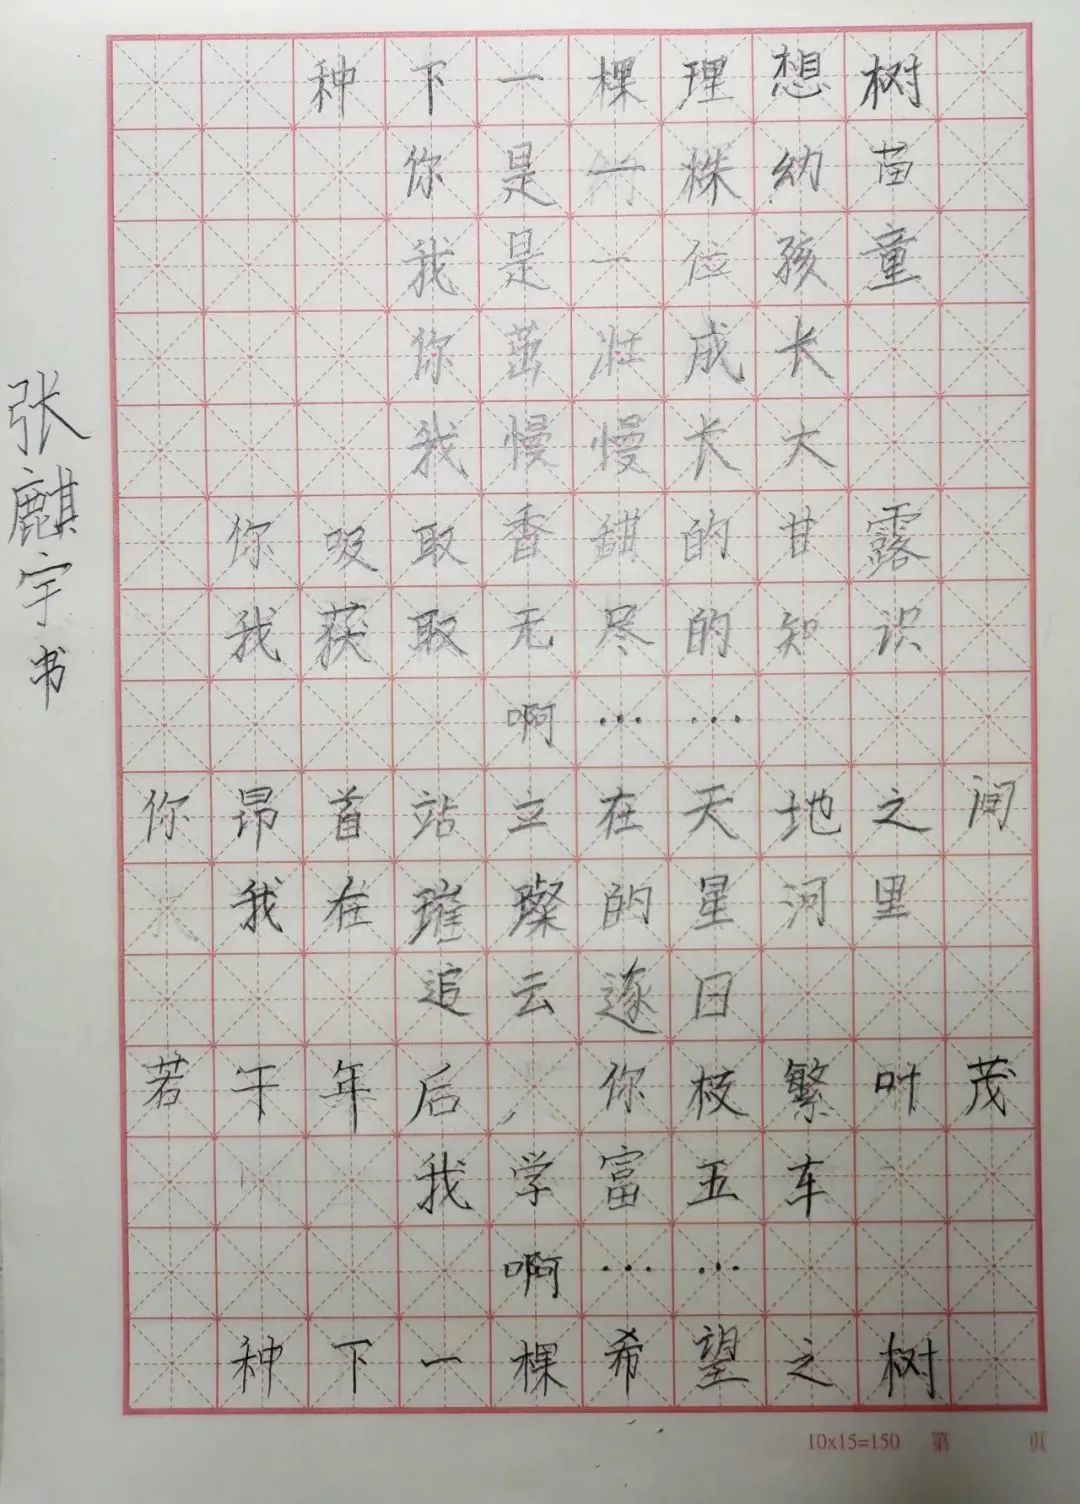 种下一棵理想树
你是一株幼苗
我是一位孩童
你茁壮成长
我慢慢长大
你吸取香甜的甘露
我获取无尽的知识
啊……
你昂首站立在天地之间
我在璀璨的星河里
追云逐日
若干年后，你枝繁叶茂
我学富五车
啊……
种下一棵希望之树
张麒宇书
10x15=150 第 页